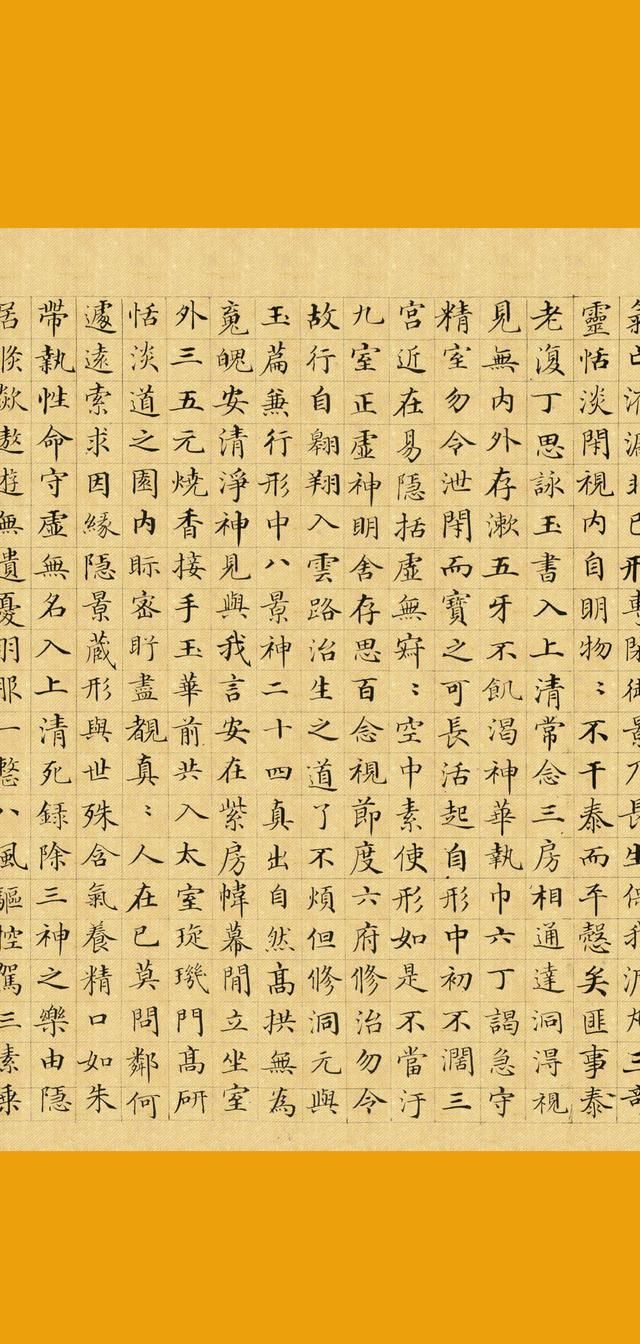 形景乃長生
靈恬淡閑視內自明物〻不干泰而平愨矣匪事泰
老復丁思詠玉書入上清常念三房相通達洞得視
見無內外存漱五牙不飢渴神華執巾六丁謁急守
精室勿令泄閇而寶之可長活起自形中初不闊三
宮近在易隱括虛無寂〻空中素使形如是不當汙
九室正虛神明舍存思百念視節度六府修治勿令
故行自翱翔入雲路治生之道了不煩但修洞元與
玉篇兼行形中八景神二十四真出自然高拱無為
魂魄安清淨神見與我言安在紫房幃幕間立坐室
外三五元燒香接手玉華前共入太室琁璣門高研
恬淡道之園內眎密盻盡覩真〻人在已莫問鄰何
遽遠索求因緣隱景藏形與世殊含氣養精口如朱
帶執性命守虛無名入上清死錄除三神之樂由隱
居倏欻遨遊無遺憂羽服一整八風驅控駕三素乘